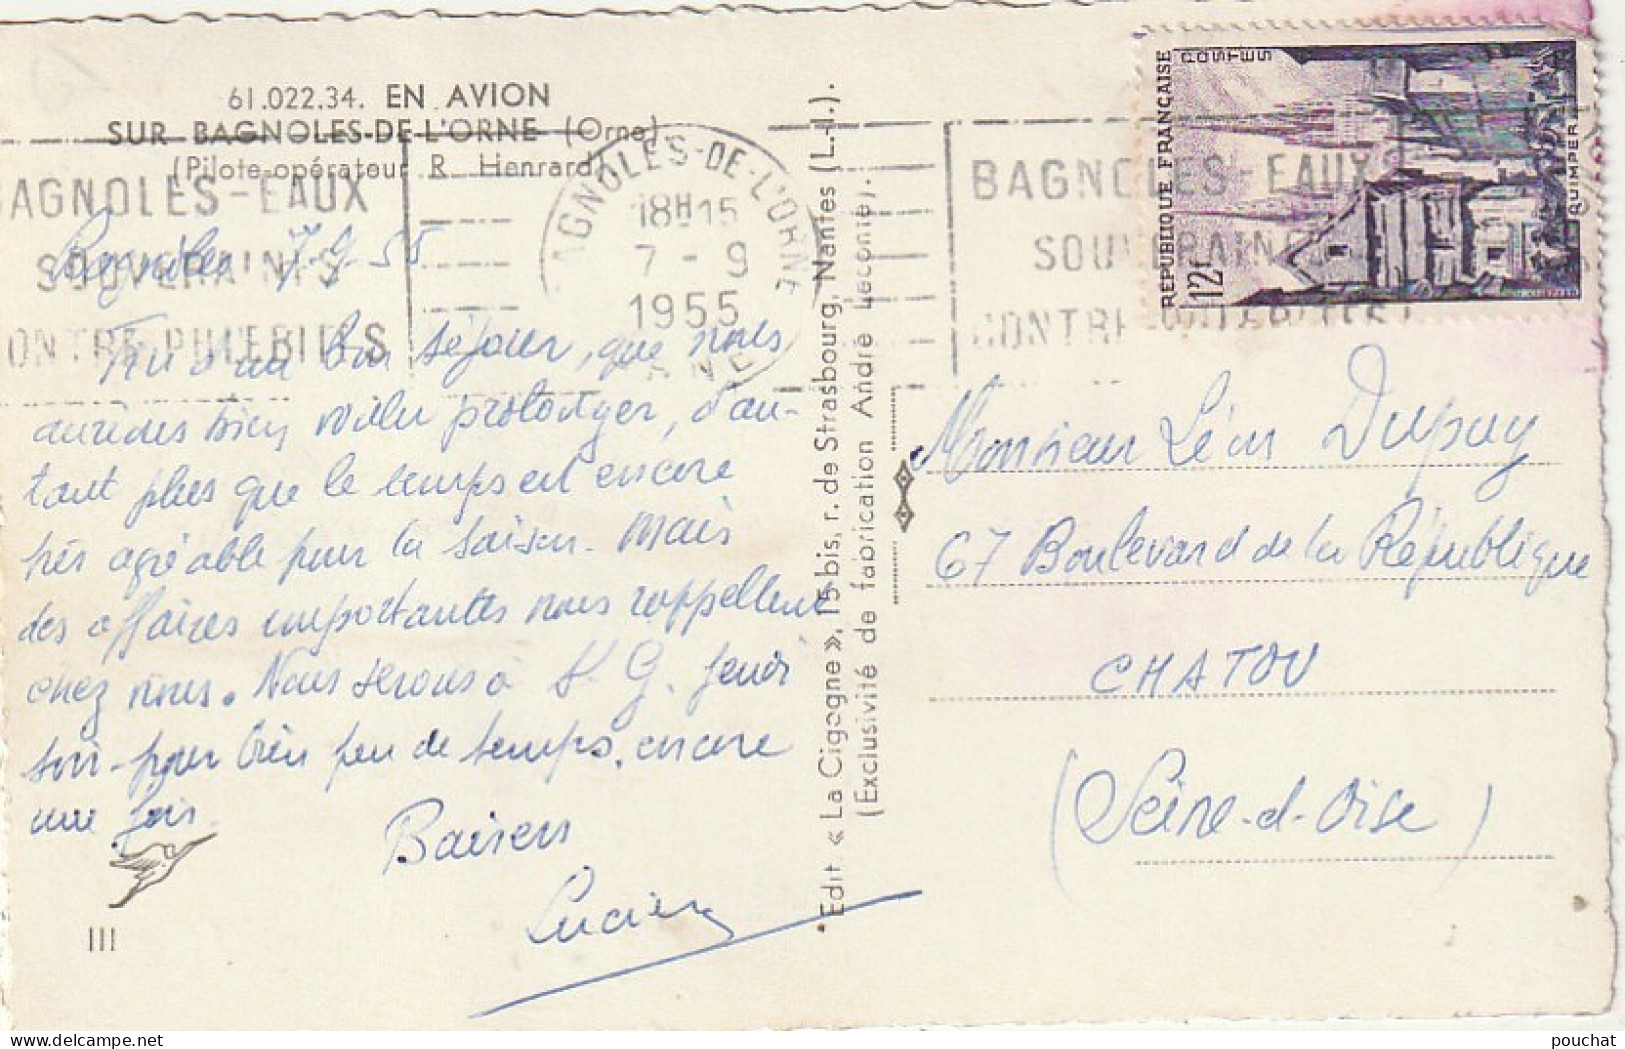 61.022.34. EN AVION
SUR BAGNOLES-DE-L'ORNE (Orne).
(Pilote-opérateur R. Henrard)
BAGNOLES-EAUX
SOUVERAINES
CONTRE PHLEBITES
BAGNOLES-DE-L'ORNE
18H15
7 - 9
1955
ORNE
BAGNOLES-EAUX
SOUVERAINES
CONTRE PHLEBITES
RÉPUBLIQUE FRANÇAISE
POSTES
12f
QUIMPER
Bagnoles 7-9-55
Fin d'un bon séjour, que nous
aurions bien voulu prolonger, d'au-
tant plus que le temps est encore
très agréable pour la saison. Mais
des affaires importantes nous rappellent
chez nous. Nous serons à S. G. jeudi
soir - pour bien peu de temps, encore
une fois.
Baisers
Lucien
III
Edit. « La Cigogne », 15 bis, r. de Strasbourg, Nantes (L.-I.).
(Exclusivité de fabrication André Leconte).
Monsieur Léon Dupuy
67 Boulevard de la République
CHATOU
(Seine-d-Oise)
pouchat